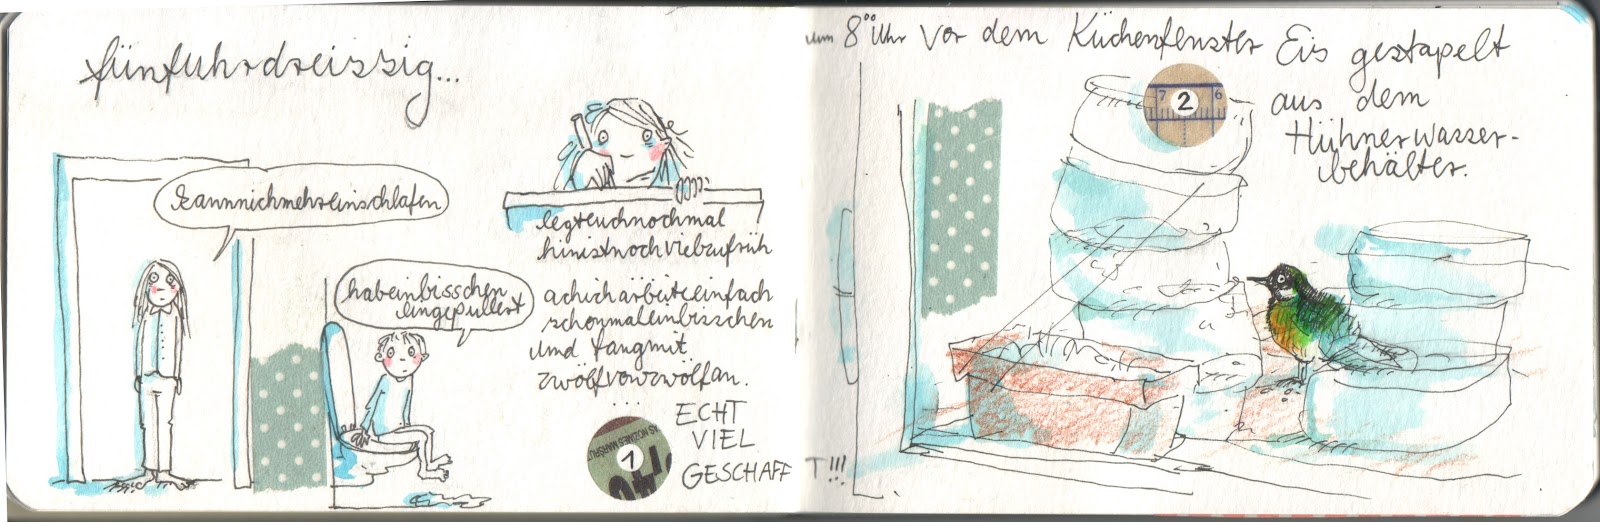 fünfuhrdreissig...
kannnichmehreinschlafen
habeinbisschen
eingepullert
legteuchnochmal
hinistnochvielzufrüh
achicharbeiteeinfach
schonmaleinbisschen
und fangmit
zwölfvonzwölfan.
...
ECHT
VIEL
GESCHAFFT!!!
1
um 8°° Uhr Vor dem Küchenfenster Eis gestapelt
aus dem
Hühnerwasser-
behälter.
7 2 6